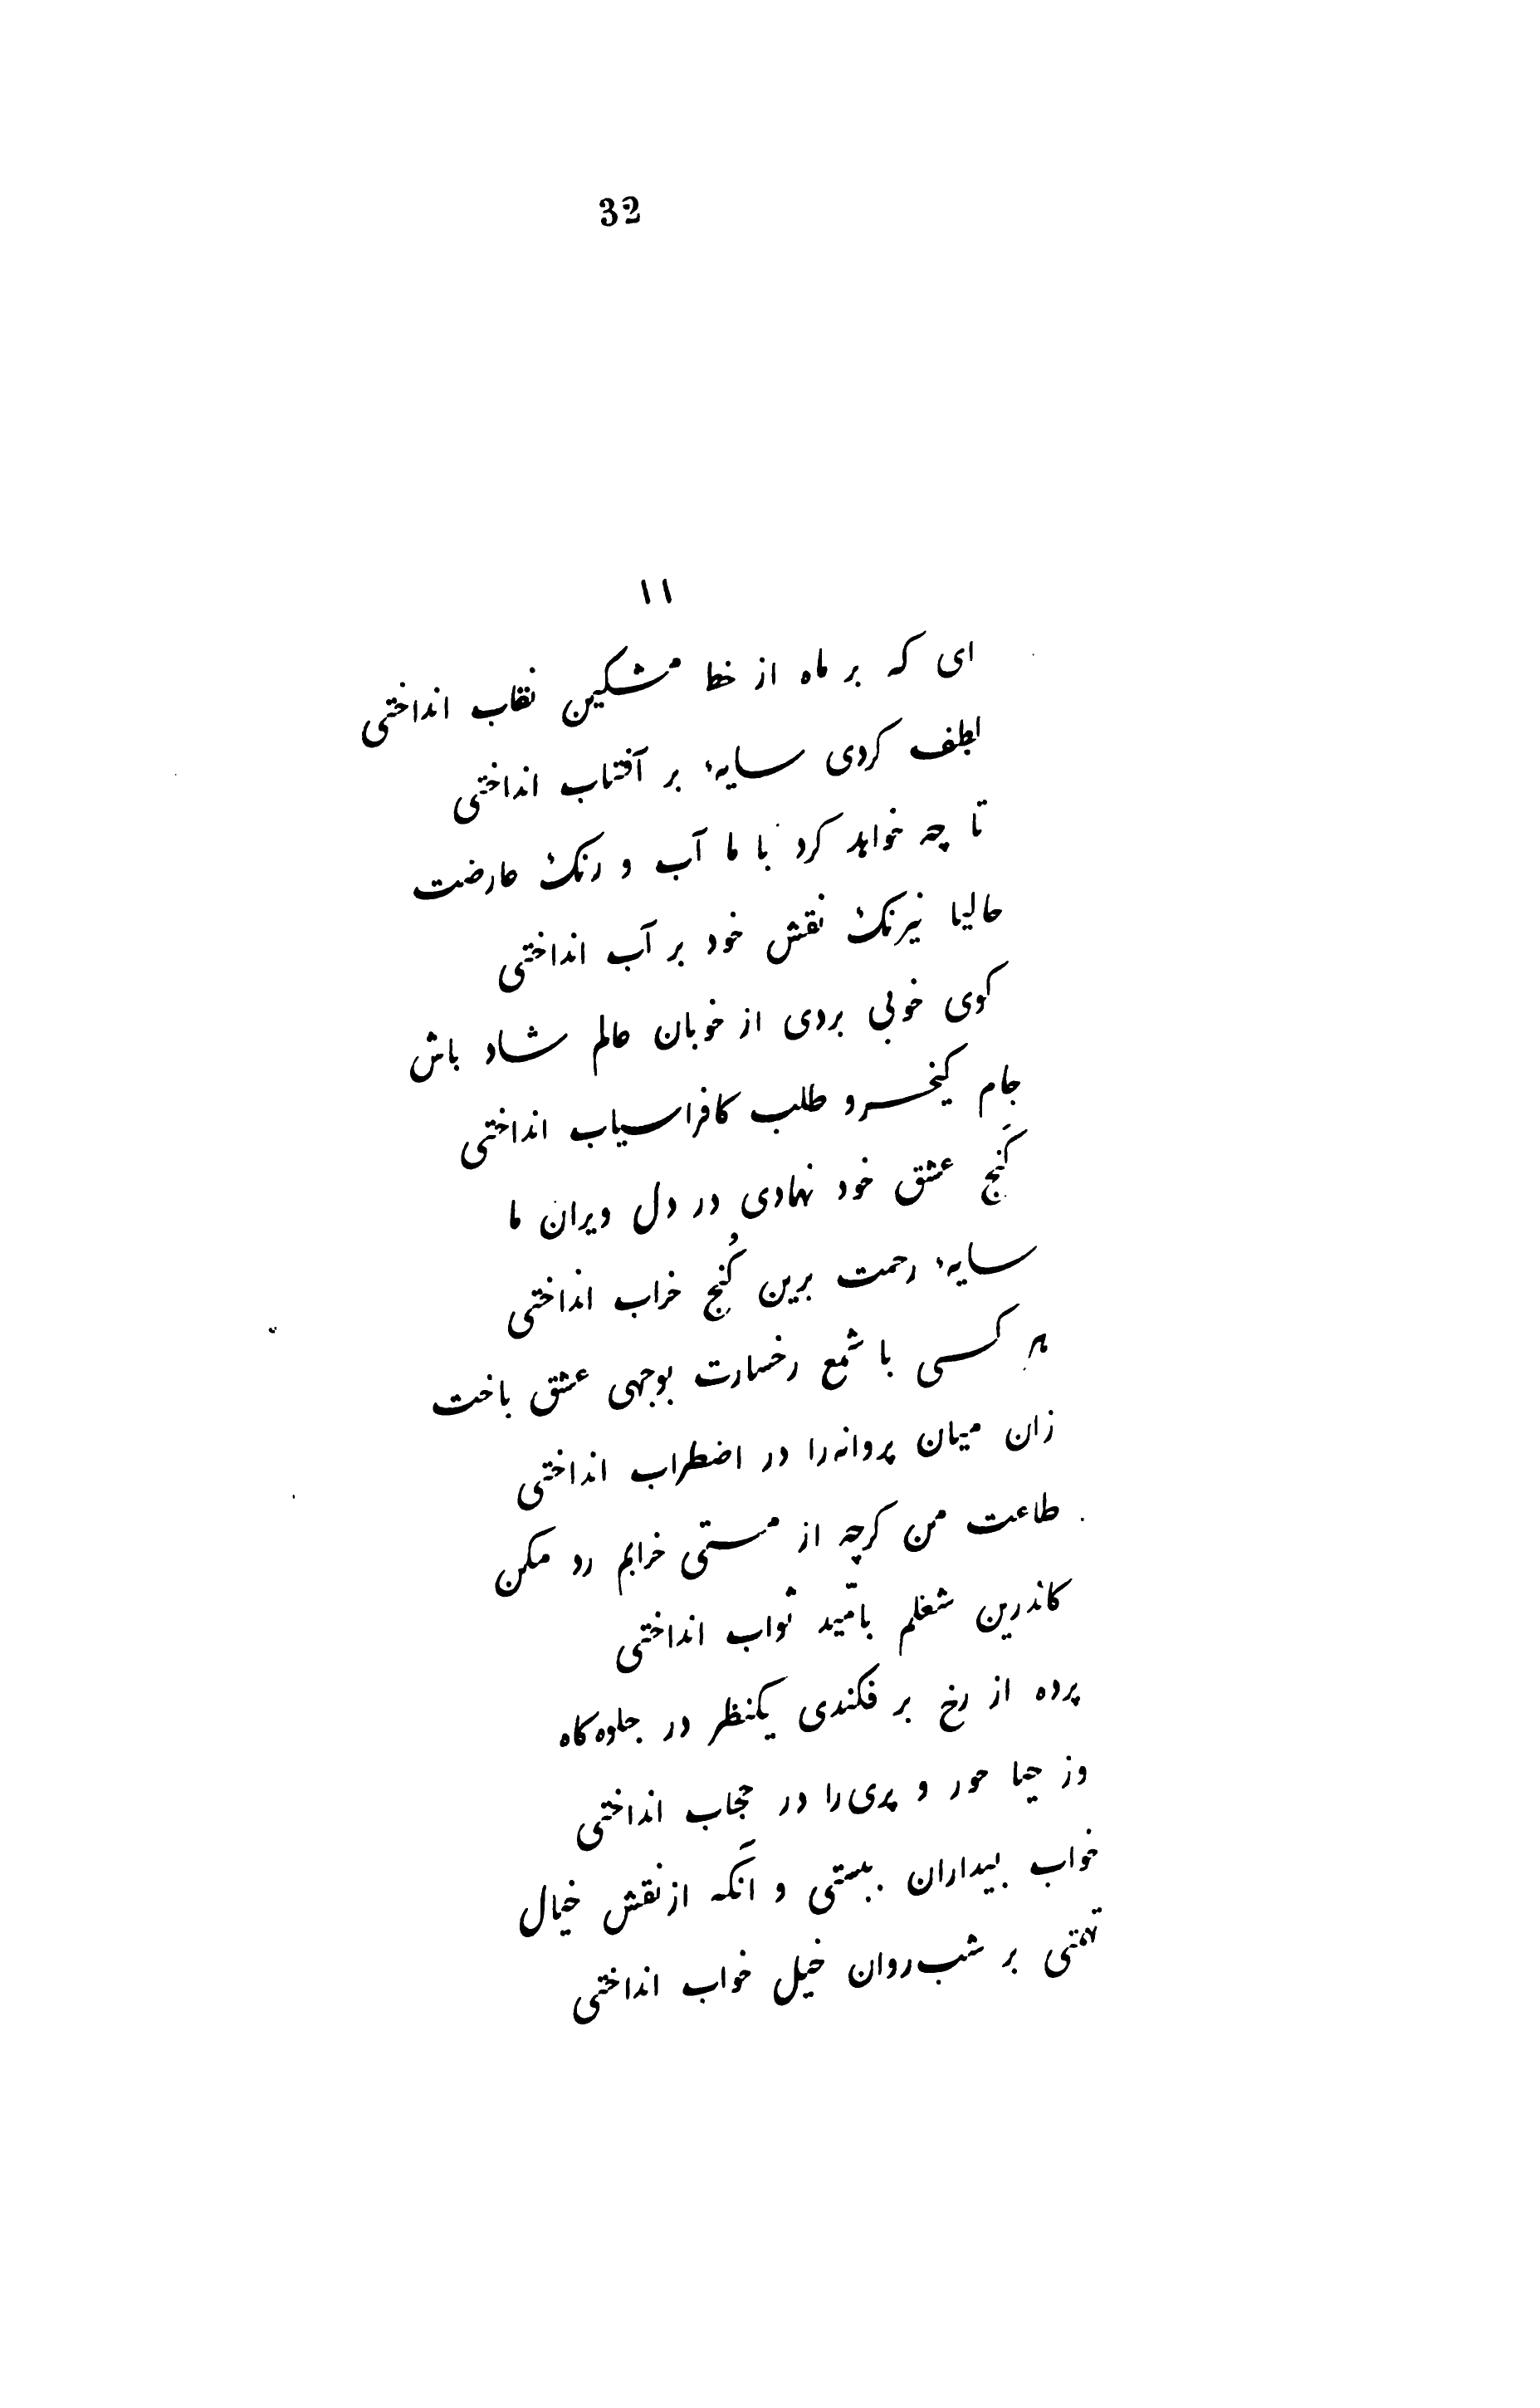 32
١١
ای که بر ماه از خط مشکین نقاب انداختی
لطف کردی سایهٔ بر آفتاب انداختی
تا چه خواهد کرد با ما آب و رنک عارضت
حالیا نیرنک نقش خود بر آب انداختی
کوی خوبی بردی از خوبان عالم شاد باش
جام کیخسرو طلب کافراسیاب انداختی
کَنج عشق خود نهادی در دل ویران ما
سایهٔ رحمت برین کُنج خراب انداختی
هر کسی با شمع رخسارت بوجهی عشق باخت
زان میان پروانه‌را در اضطراب انداختی
طاعت من کرچه از مستی خرابم رد مکن
کاندرین شغلم بامّید ثواب انداختی
پرده از رخ بر فکندی یکنظر در جلوه‌کاه
وز حیا حور و پری‌را در حجاب انداختی
خواب بیداران ببستی و آنکه از نقش خیال
تهمتی بر شب‌روان خیل خواب انداختی